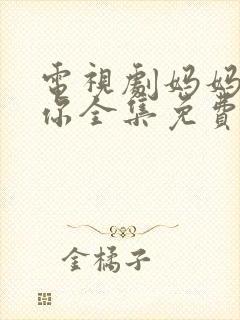 電視劇媽媽
你全集免費
金橘子